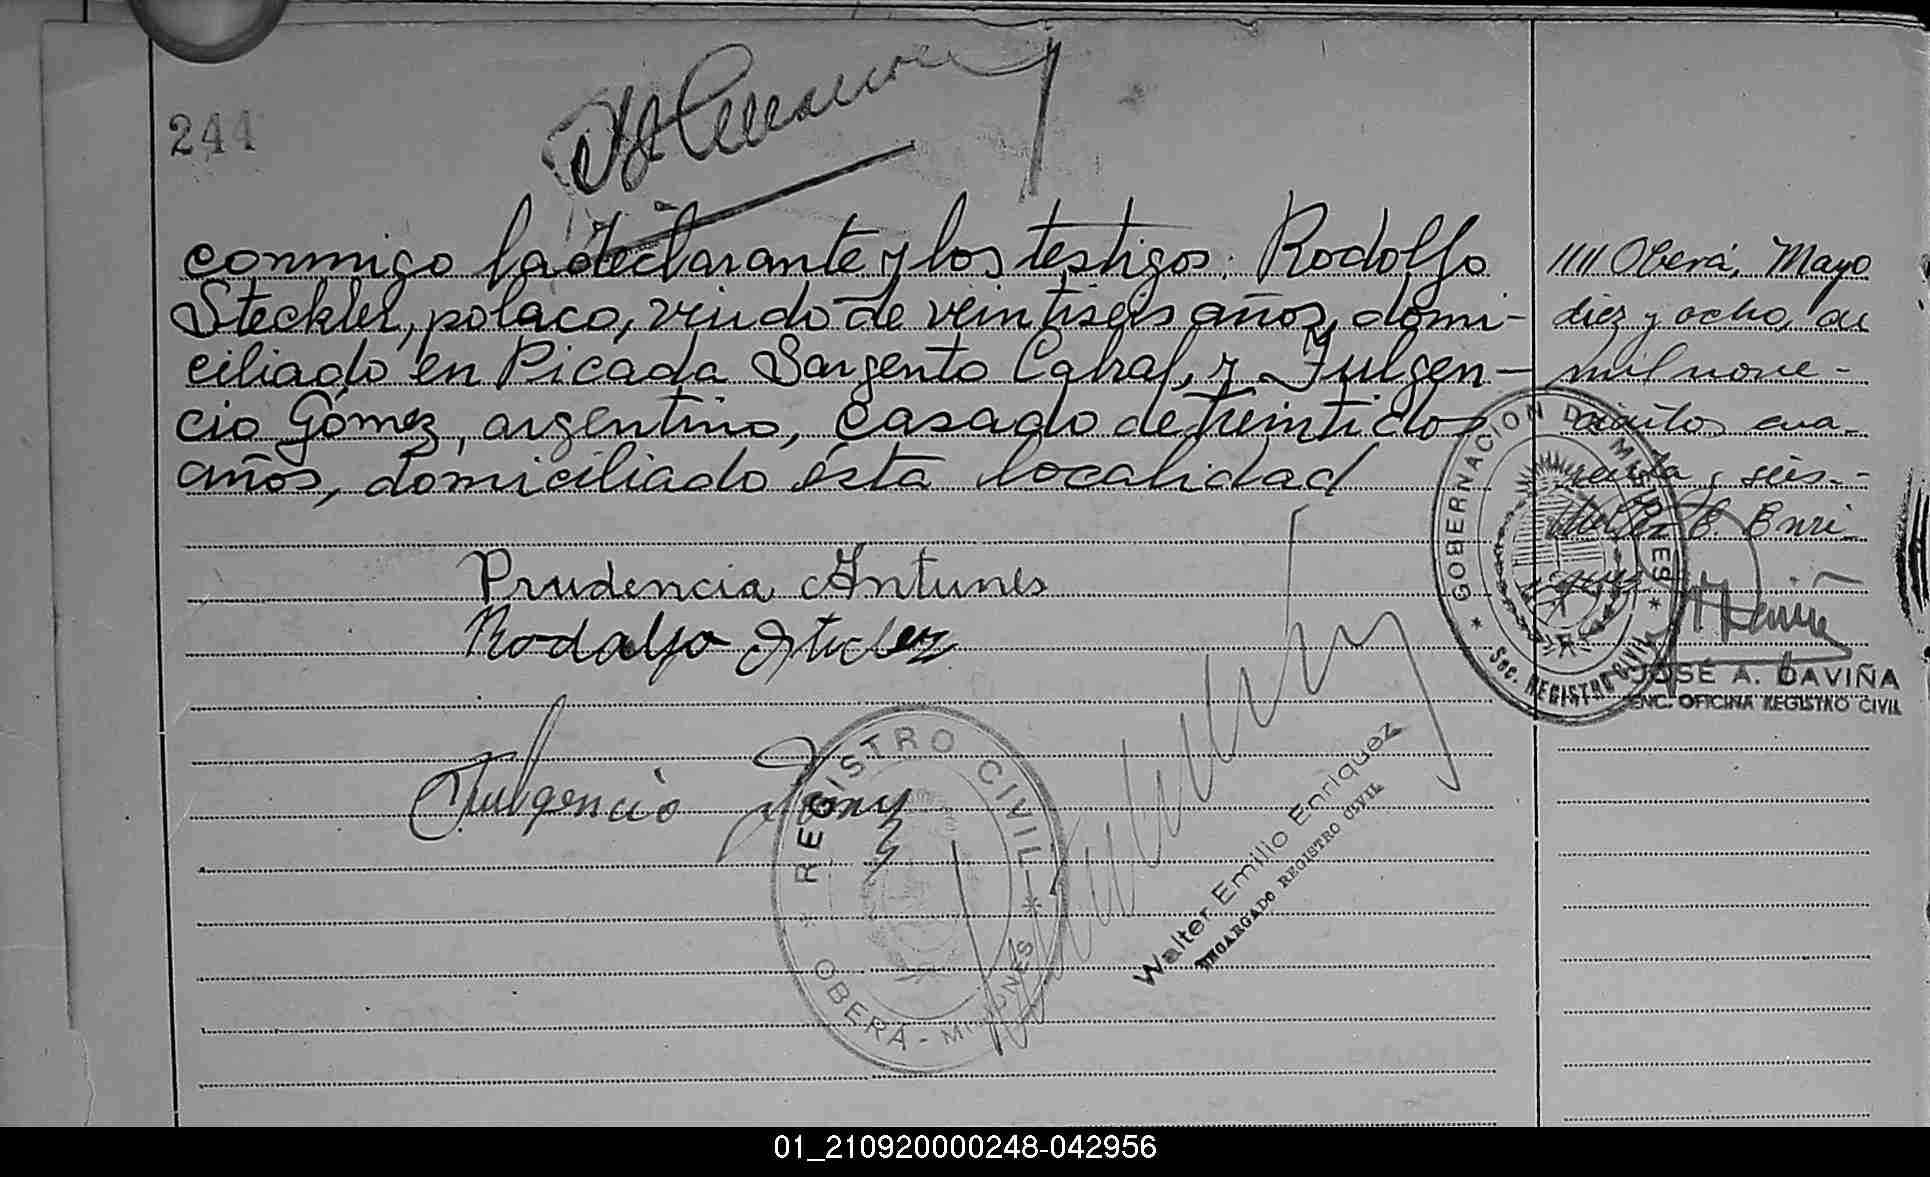 244
conmigo la declarante y los testigos: Rodolfo
Steckler, polaco, viudo de veintiseis años, domi-
ciliado en Picada Sargento Cabral, y Fulgen-
cio Gómez, argentino, casado de treintidos
años, domiciliado ésta localidad
Prudencia Antunes
Rodolfo
Fulgencio
REGISTRO CIVIL
* OBERA - MISIONES *
Walter Emilio Enriquez
ENCARGADO REGISTRO CIVIL
//// Oberá, Mayo
diez y ocho, de
mil nove-
cientos cua-
renta y seis.-
Walter E. Enri-
quez
GOBERNACION DE MISIONES
* Sec. REGISTRO CIVIL *
JOSÉ A. DAVIÑA
ENC. OFICINA REGISTRO CIVIL
01_210920000248-042956